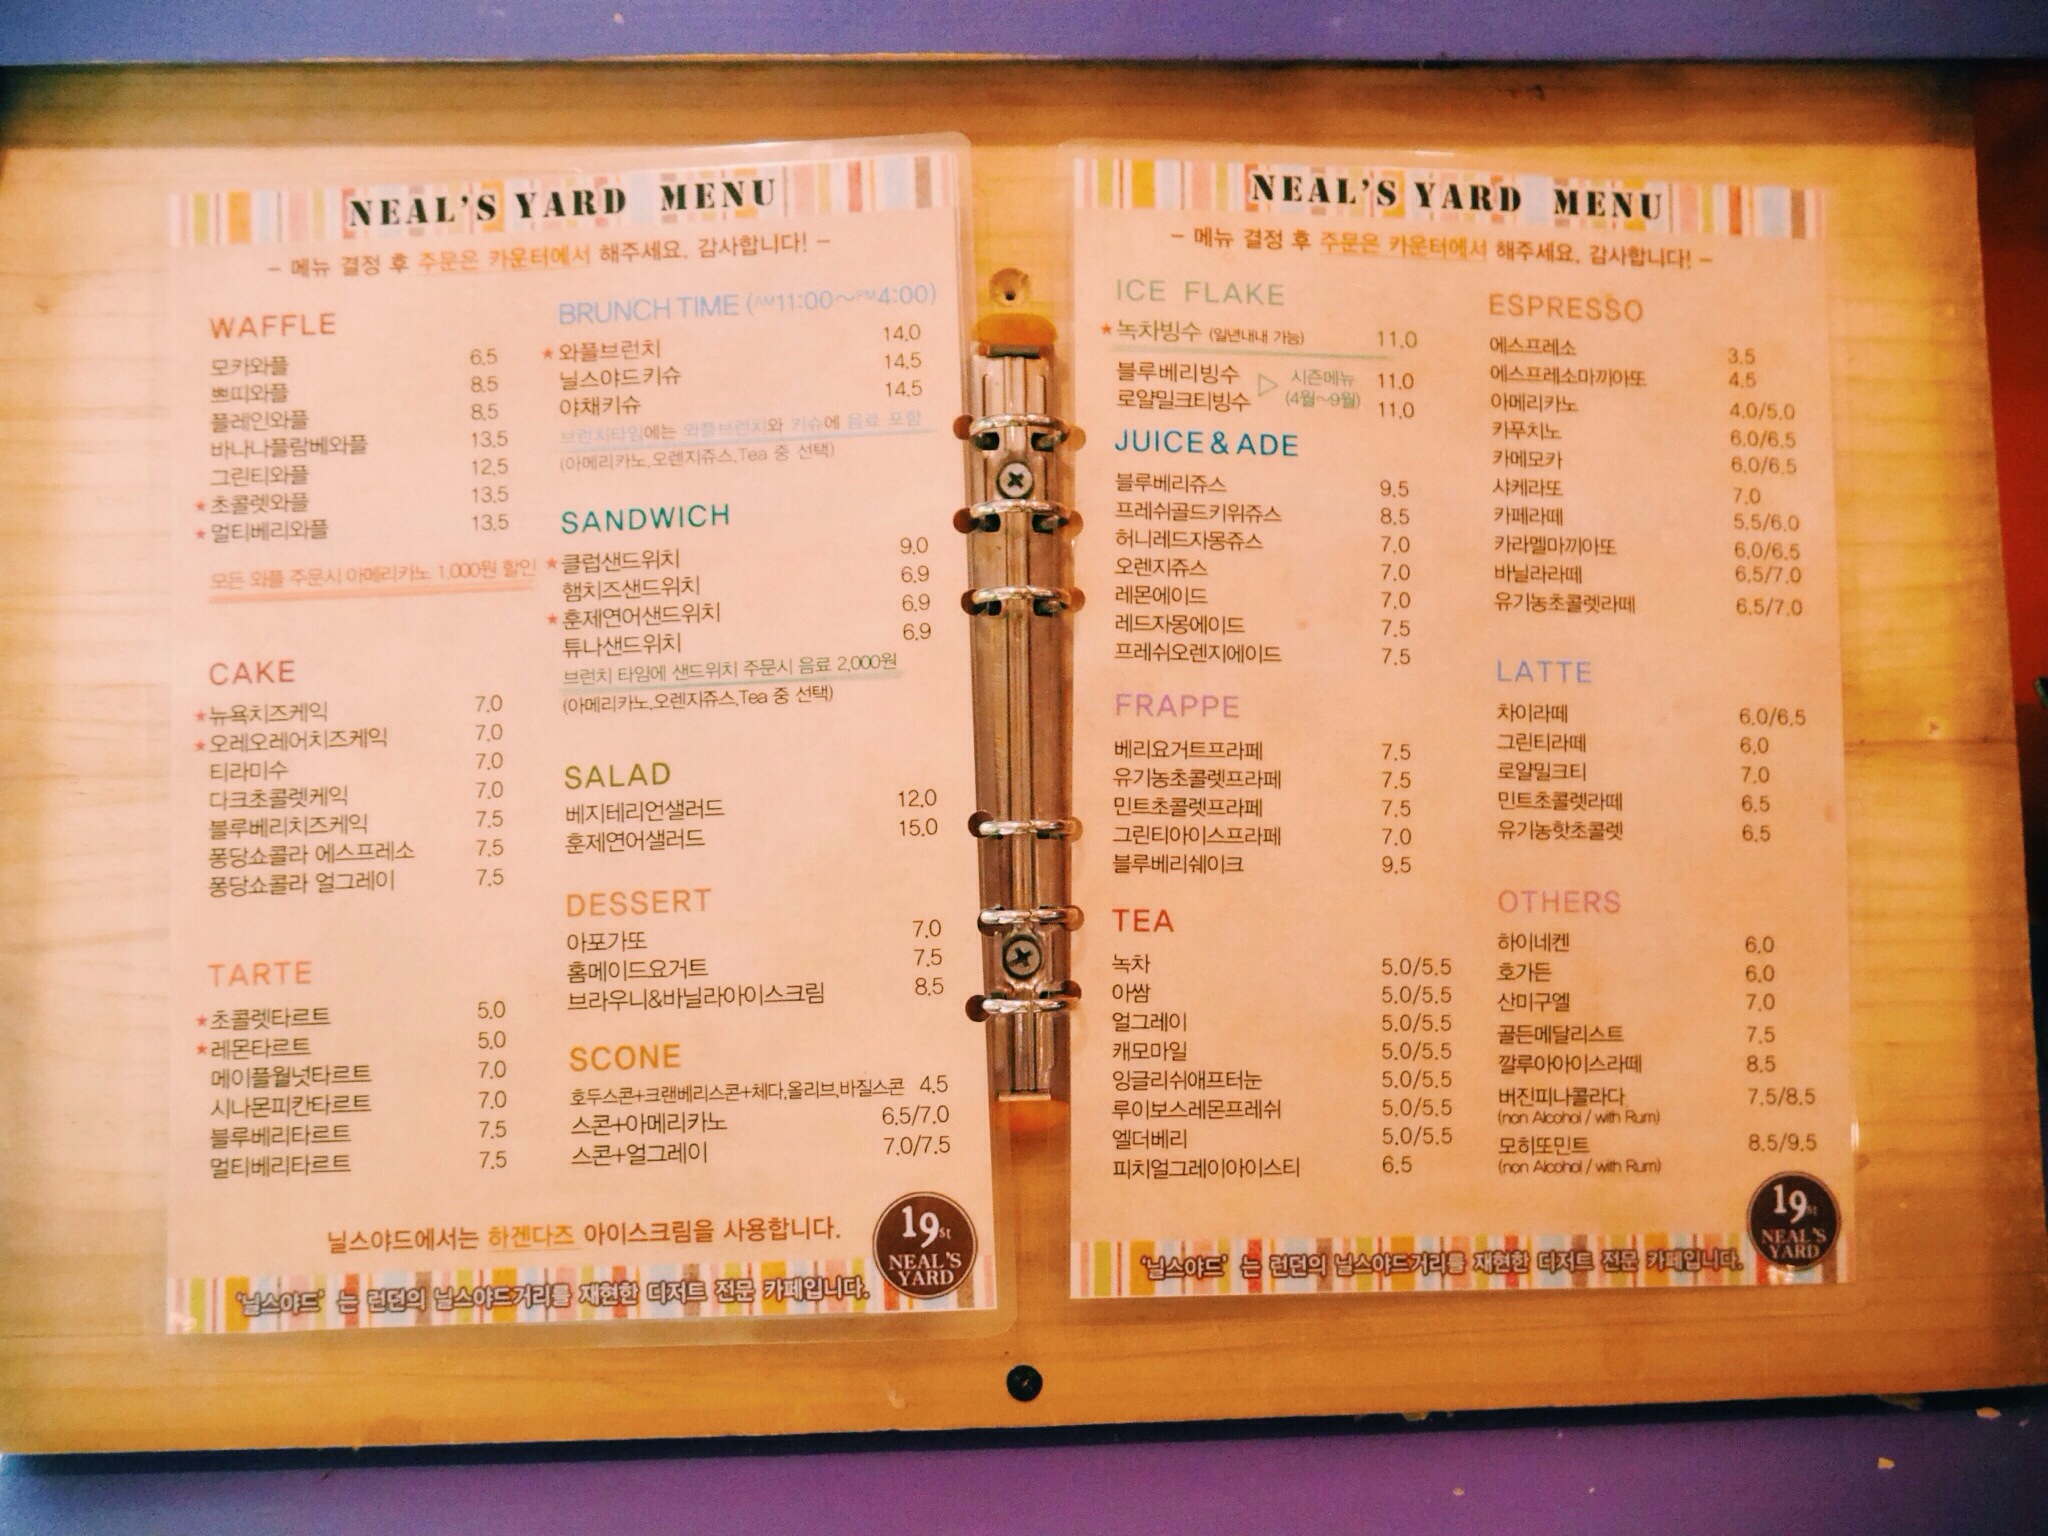 NEAL'S YARD MENU
- 메뉴 결정 후 주문은 카운터에서 해주세요. 감사합니다! -
WAFFLE
모카와플 6.5
쁘띠와플 8.5
플레인와플 8.5
바나나플람베와플 13.5
그린티와플 12.5
★초콜렛와플 13.5
★멀티베리와플 13.5
모든 와플 주문시 아메리카노 1,000원 할인
CAKE
★뉴욕치즈케익 7.0
★오레오레어치즈케익 7.0
티라미수 7.0
다크초콜렛케익 7.0
블루베리치즈케익 7.5
퐁당쇼콜라 에스프레소 7.5
퐁당쇼콜라 얼그레이 7.5
TARTE
★초콜렛타르트 5.0
★레몬타르트 5.0
메이플월넛타르트 7.0
시나몬피칸타르트 7.0
블루베리타르트 7.5
멀티베리타르트 7.5
BRUNCH TIME (AM11:00~PM4:00)
★와플브런치 14.0
닐스야드키슈 14.5
야채키슈 14.5
브런치타임에는 와플브런치와 키슈에 음료 포함
(아메리카노,오렌지쥬스,Tea 중 선택)
SANDWICH
★클럽샌드위치 9.0
햄치즈샌드위치 6.9
★훈제연어샌드위치 6.9
튜나샌드위치 6.9
브런치 타임에 샌드위치 주문시 음료 2,000원
(아메리카노,오렌지쥬스,Tea 중 선택)
SALAD
베지테리언샐러드 12.0
훈제연어샐러드 15.0
DESSERT
아포가또 7.0
홈메이드요거트 7.5
브라우니&바닐라아이스크림 8.5
SCONE
호두스콘+크랜베리스콘+체다,올리브,바질스콘 4.5
스콘+아메리카노 6.5/7.0
스콘+얼그레이 7.0/7.5
닐스야드에서는 하겐다즈 아이스크림을 사용합니다.
19st
NEAL'S
YARD
'닐스야드' 는 런던의 닐스야드거리를 재현한 디저트 전문 카페입니다.
NEAL'S YARD MENU
- 메뉴 결정 후 주문은 카운터에서 해주세요. 감사합니다! -
ICE FLAKE
★녹차빙수 (일년내내 가능) 11.0
블루베리빙수 ▷ 시즌메뉴 11.0
로얄밀크티빙수 (4월~9월) 11.0
JUICE & ADE
블루베리쥬스 9.5
프레쉬골드키위쥬스 8.5
허니레드자몽쥬스 7.0
오렌지쥬스 7.0
레몬에이드 7.0
레드자몽에이드 7.5
프레쉬오렌지에이드 7.5
FRAPPE
베리요거트프라페 7.5
유기농초콜렛프라페 7.5
민트초콜렛프라페 7.5
그린티아이스프라페 7.0
블루베리쉐이크 9.5
TEA
녹차 5.0/5.5
아쌈 5.0/5.5
얼그레이 5.0/5.5
캐모마일 5.0/5.5
잉글리쉬애프터눈 5.0/5.5
루이보스레몬프레쉬 5.0/5.5
엘더베리 5.0/5.5
피치얼그레이아이스티 6.5
ESPRESSO
에스프레소 3.5
에스프레소마끼아또 4.5
아메리카노 4.0/5.0
카푸치노 6.0/6.5
카페모카 6.0/6.5
샤케라또 7.0
카페라떼 5.5/6.0
카라멜마끼아또 6.0/6.5
바닐라라떼 6.5/7.0
유기농초콜렛라떼 6.5/7.0
LATTE
차이라떼 6.0/6.5
그린티라떼 6.0
로얄밀크티 7.0
민트초콜렛라떼 6.5
유기농핫초콜렛 6.5
OTHERS
하이네켄 6.0
호가든 6.0
산미구엘 7.0
골든메달리스트 7.5
깔루아아이스라떼 8.5
버진피나콜라다 7.5/8.5
(non Alcohol / with Rum)
모히또민트 8.5/9.5
(non Alcohol / with Rum)
19st
NEAL'S
YARD
'닐스야드' 는 런던의 닐스야드거리를 재현한 디저트 전문 카페입니다.